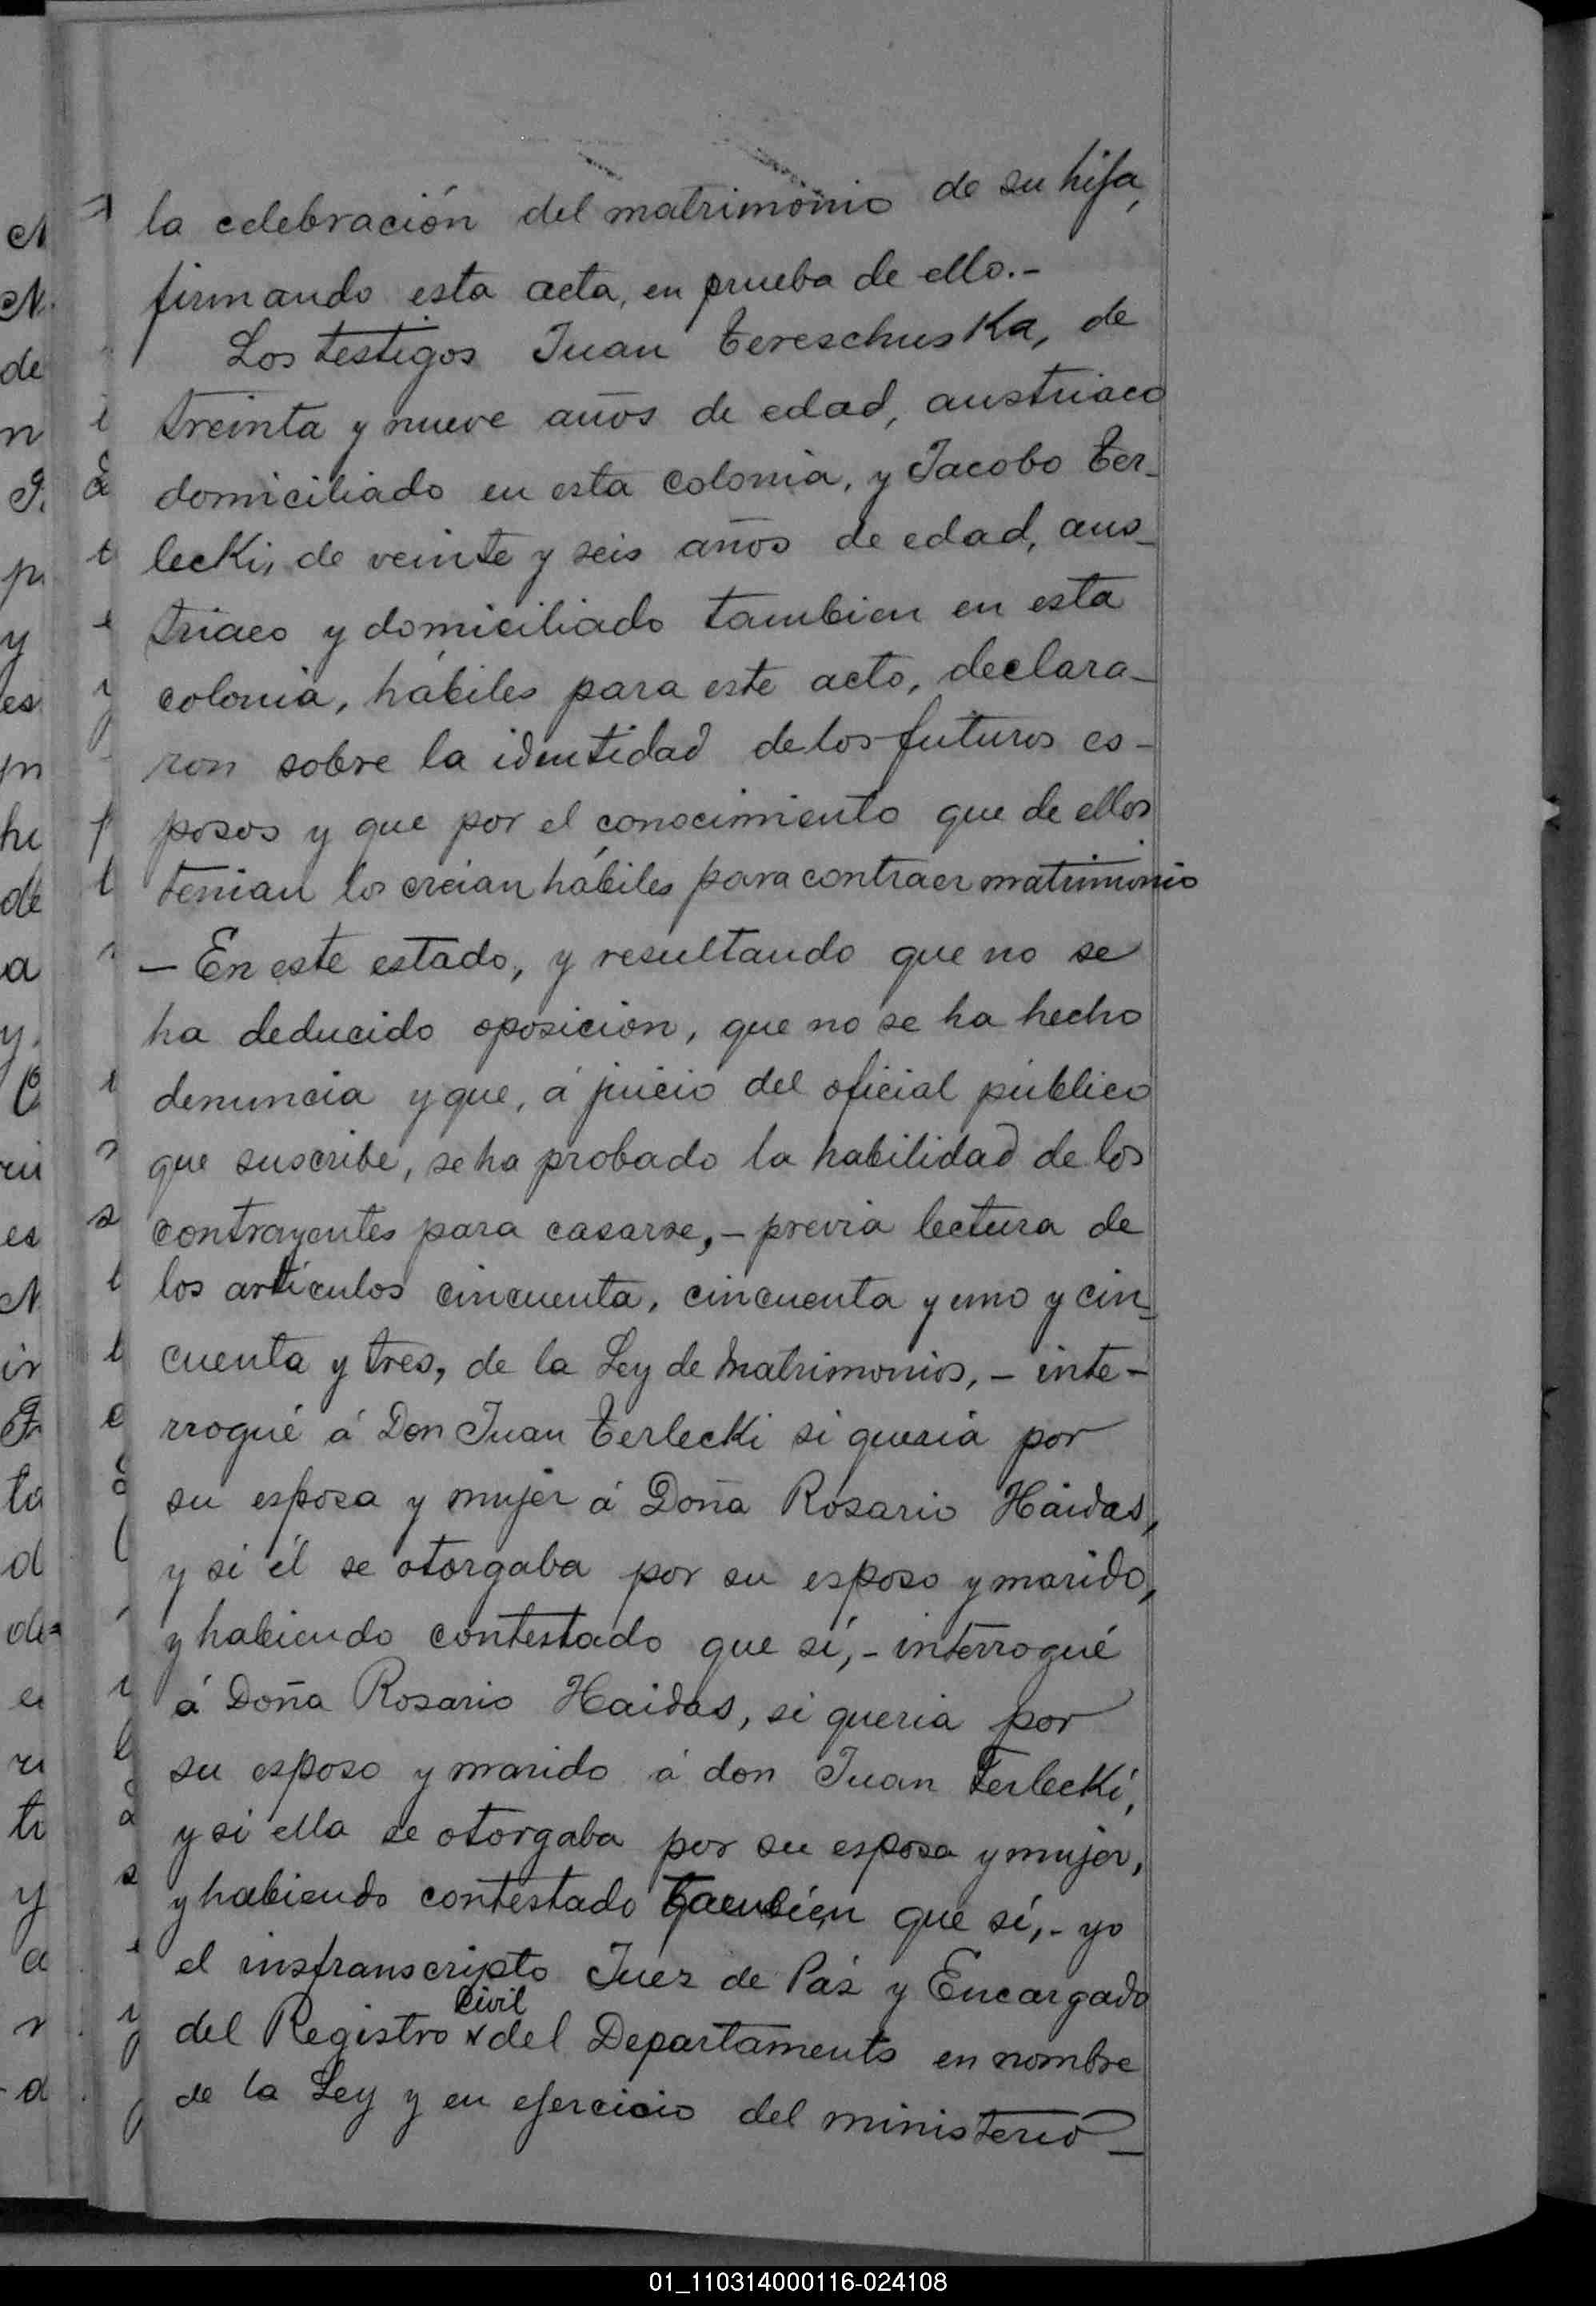 la celebración del matrimonio de su hija,
firmando esta acta, en prueba de ello.-
Los testigos Juan Tereschuska, de
treinta y nueve años de edad, austriaco
domiciliado en esta colonia, y Jacobo Ter-
lecki, de veinte y seis años de edad, aus-
triaco y domiciliado tambien en esta
colonia, hábiles para este acto, declara-
ron sobre la identidad de los futuros es-
posos y que por el conocimiento que de ellos
tenian los creian hábiles para contraer matrimonio
- En este estado, y resultando que no se
ha deducido oposicion, que no se ha hecho
denuncia y que, á juicio del oficial público
que suscribe, se ha probado la habilidad de los
contrayentes para casarse,- previa lectura de
los artículos cincuenta, cincuenta y uno y cin-
cuenta y tres, de la Ley de Matrimonios,- inte-
rrogué á Don Juan Terlecki si queria por
su esposa y mujer á Doña Rosario Haidas,
y si él se otorgaba por su esposo y marido,
y habiendo contestado que sí,- interrogué
á Doña Rosario Haidas, si queria por
su esposo y marido á don Juan Terlecki,
y si ella se otorgaba por su esposa y mujer,
y habiendo contestado también que sí,- yo
el insfranscripto Juez de Paz y Encargado
civil
del Registro del Departamento en nombre
de la Ley y en ejercicio del ministerio-
01_110314000116-024108